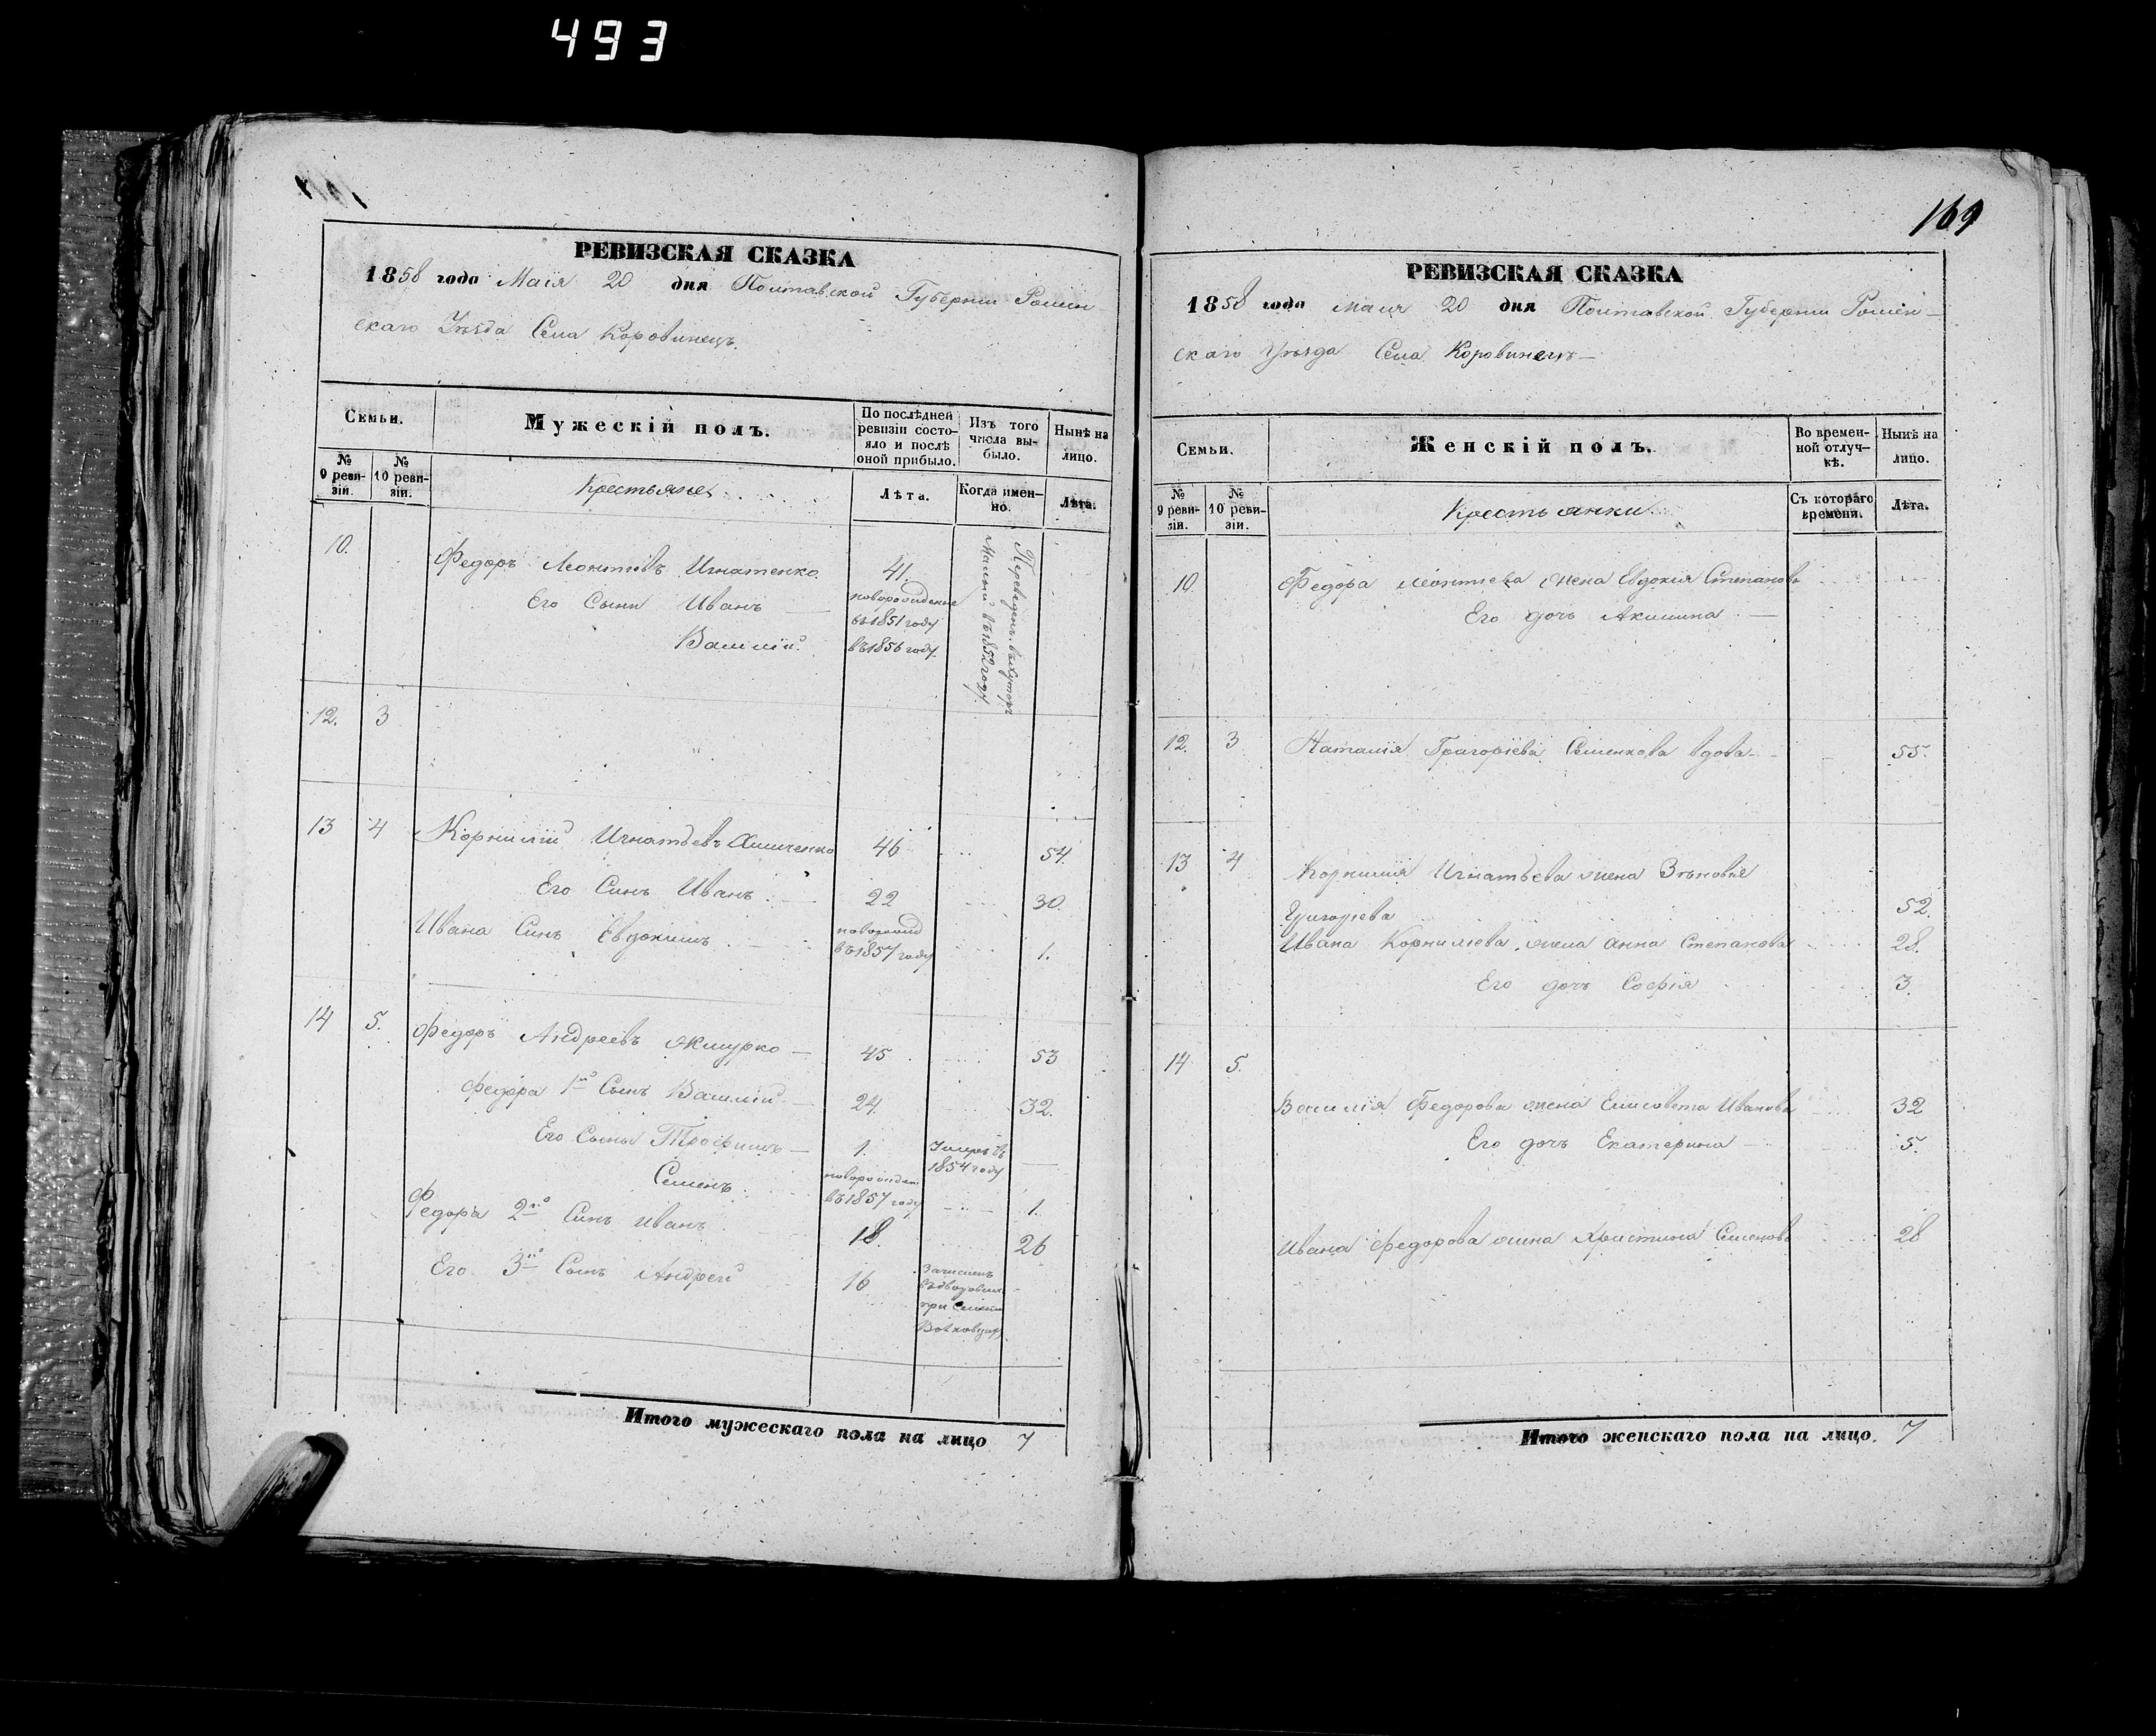 493
РЕВИЗСКАЯ СКАЗКА
1858 года Маія 20 дня Полтавской Губерніи Ромен
скаго Уѣзда Села Коровинецъ.
Семьи.
Мужескій полъ.
По послѣдней ревизіи состо-
яло и послѣ оной прибыло.
Изъ того числа вы-
было.
Нынѣ на лицо.
№ 9 реви-
зіи.
№ 10 реви-
зіи.
Крестьяне
Лѣта.
Когда имен-
но.
Лѣта.
10.
Федоръ Леонтіевъ Игнатенко
41.
Переведенъ въ Хуторъ
въ 1852 году
Его Сыни Иванъ —
новорожденные
въ 1851 году
Василій.
въ 1856 году
12. 3
13 4 Корнилій Игнатьевъ 46 54.
Его Синъ Иванъ 22 30.
Ивана Синъ Евдокимъ
въ 1857 году 1.
14 5. Федоръ Андреевъ Жмурко — 45 53
Федора 1й Сынъ Василій — 24. 32.
Его Сыны Трофимъ — 1. Умеръ въ
1854 году —
Семенъ новорожден
въ 1857 году 1.
Федора 2й Синъ Иванъ 18. 26
Его 3й Сынъ Андрей 16 Зачисленъ
при
Итого мужескаго пола на лицо 7
169
РЕВИЗСКАЯ СКАЗКА
1858 года Маія 20 дня Полтавской Губерніи Ромен-
скаго Уѣзда Села Коровинецъ —
Семьи.
Женскій полъ.
Во времен-
ной отлуч-
кѣ.
Нынѣ на лицо.
№ 9 реви-
зіи.
№ 10 реви-
зіи.
Крестьянки
Съ котораго времени.
Лѣта.
10. Федора Леонтіева жена Евдокія Степанова
Его дочь Акилина —
12. 3 Наталія Григоріева Семенкова вдова 55.
13 4 Корнилія Игнатьева жена Зѣновія
Григоріева 52.
Ивана Корниліева жена Анна Степанова 28.
Его дочь Софія 3.
14 5.
Василія Федорова жена Елисовета Иванова 32
Его дочь Екатерина — 5.
Ивана Федорова жина Христина Семенова 28
Итого женскаго пола на лицо. 7